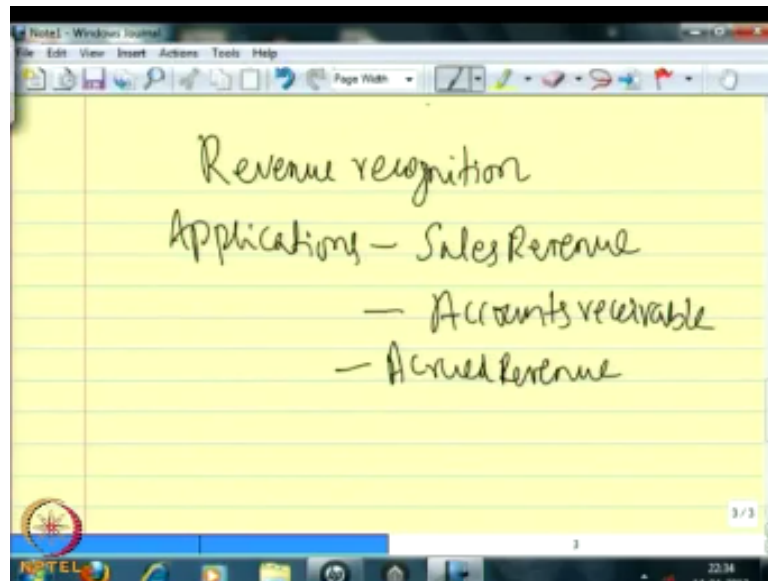 Note1 - Windows Journal
File Edit View Insert Actions Tools Help
Page Width
Revenue recognition
Applications - Sales Revenue
- Accounts receivable
- Accrued Revenue
3/3
3
NPTEL
22:34